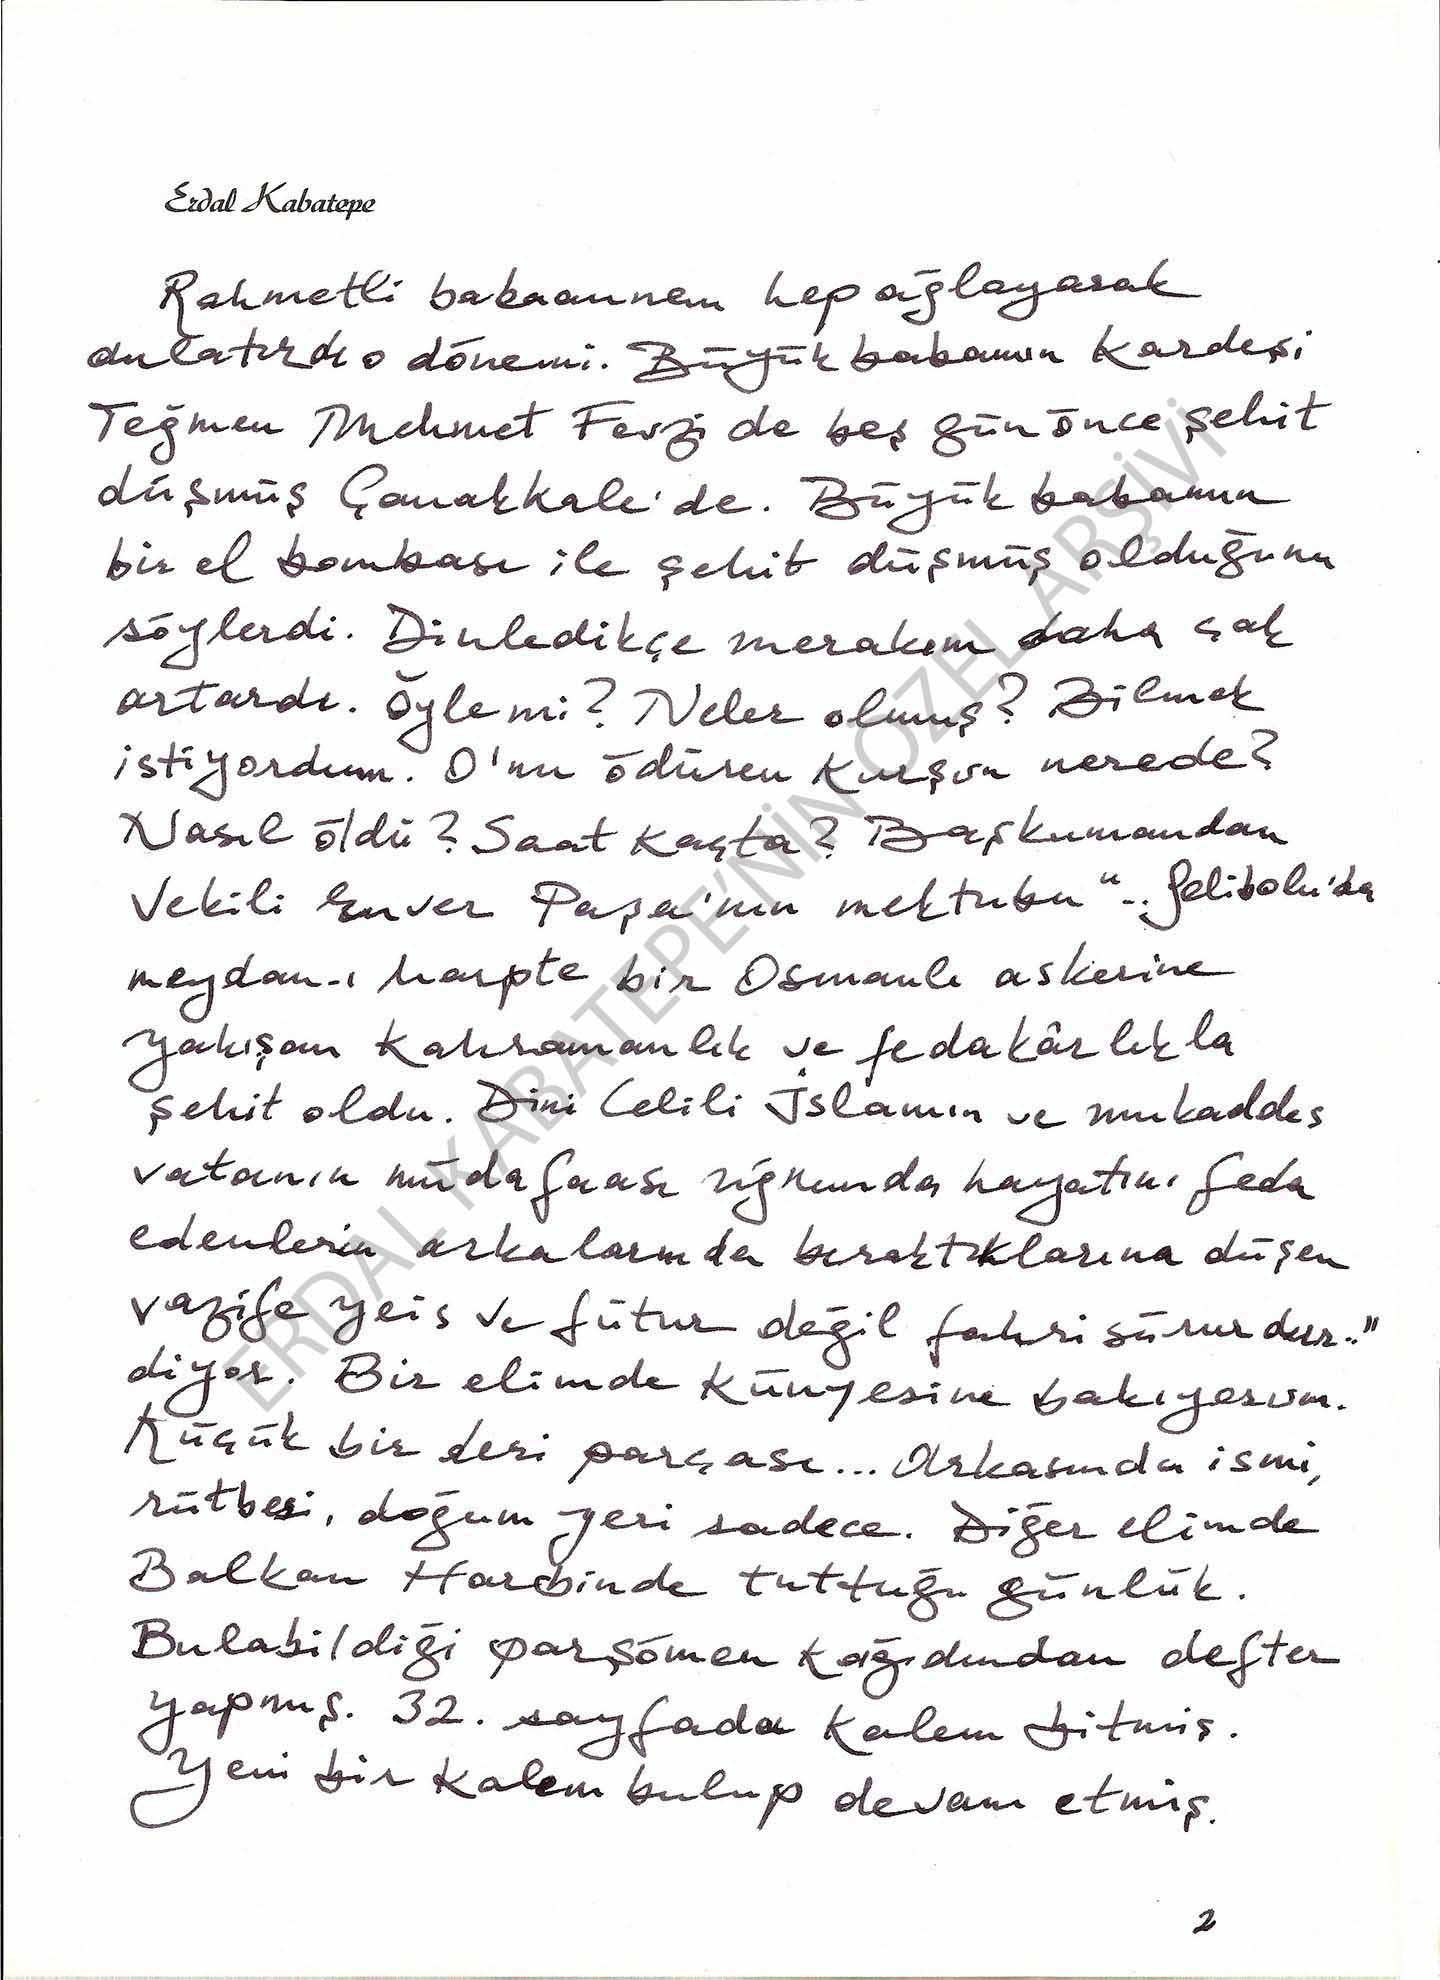 Erdal Kabatepe
Rahmetli babaannem hep ağlayarak
anlatırdı o dönemi. Büyükbabamın kardeşi
Teğmen Mehmet Fevzi de beş gün önce şehit
düşmüş Çanakkale'de. Büyükbabamın
bir el bombası ile şehit düşmüş olduğunu
söylerdi. Dinledikçe merakım daha çok
artardı. Öyle mi? Neler olmuş? Bilmek
istiyordum. O'nu ödüren kurşun nerede?
Nasıl öldü? Saat kaçta? Başkumandan
Vekili Enver Paşa'nın mektubu ".. Gelibolu'da
meydan-ı harpte bir Osmanlı askerine
yakışan kahramanlık ve fedakârlıkla
şehit oldu. Dini Celili İslamın ve mukaddes
vatanın müdafaası uğrunda hayatını feda
edenlerin arkalarında bıraktıklarına düşen
vazife yeis ve fütur değil fahri sürurdur.."
diyor. Bir elimde künyesine bakıyorum.
Küçük bir deri parçası... Arkasında ismi,
rütbesi, doğum yeri sadece. Diğer elimde
Balkan Harbinde tuttuğu günlük.
Bulabildiği parşömen kağıdından defter
yapmış. 32. sayfada kalem bitmiş.
Yeni bir kalem bulup devam etmiş.
2
ERDAL KABATEPE'NİN ÖZEL ARŞİVİ